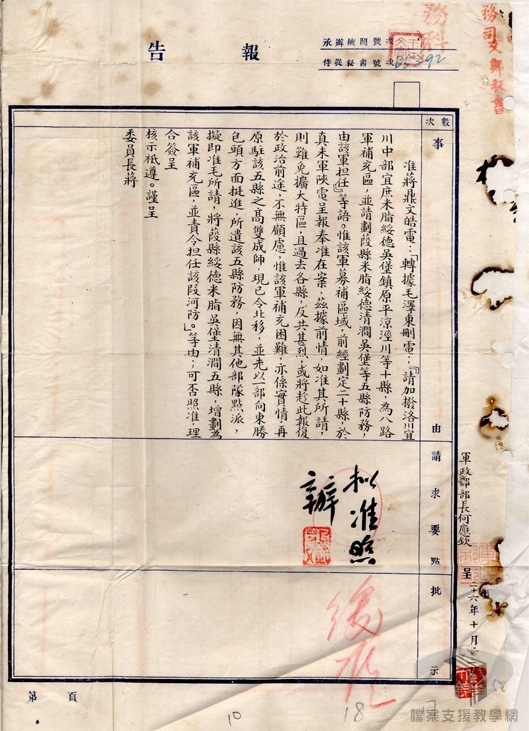 報告
承辦機關號次
侍從秘書號次
2392
敍次
事由
請求要點
批示
准蔣鼎文皓電：「轉據毛澤東刪電：『請加撥洛川宜
川中部宜庶米脂綏德吳堡鎮原平涼涇川等十縣，為八路
軍補充區，並請劃葭縣米脂綏德清澗吳堡等五縣防務，
由該軍担任』等語。惟該軍募補區域，前經劃定二十縣，於
真未軍陝電呈報奉准在案，茲據前情，如准其所請，
則難免擴大特區，且過去各縣，反共甚烈，或將趁此報復，
於政治前途，不無顧慮。惟該軍補充困難，亦係實情，再
原駐該五縣之高雙成師，現已令北移，並先以一部向東勝
包頭方面挺進，所遺該五縣防務，因無其他部隊點派，
擬即准毛所請，將葭縣綏德米脂吳堡清澗五縣，增劃為
該軍補充區，並責令担任該段河防。」等由；可否照准，理
合簽呈
核示祗遵。謹呈
委員長蔣
軍政部部長何應欽
呈
二十六年十月
拟准照
辦
第頁
10
18
檔案支援教學網